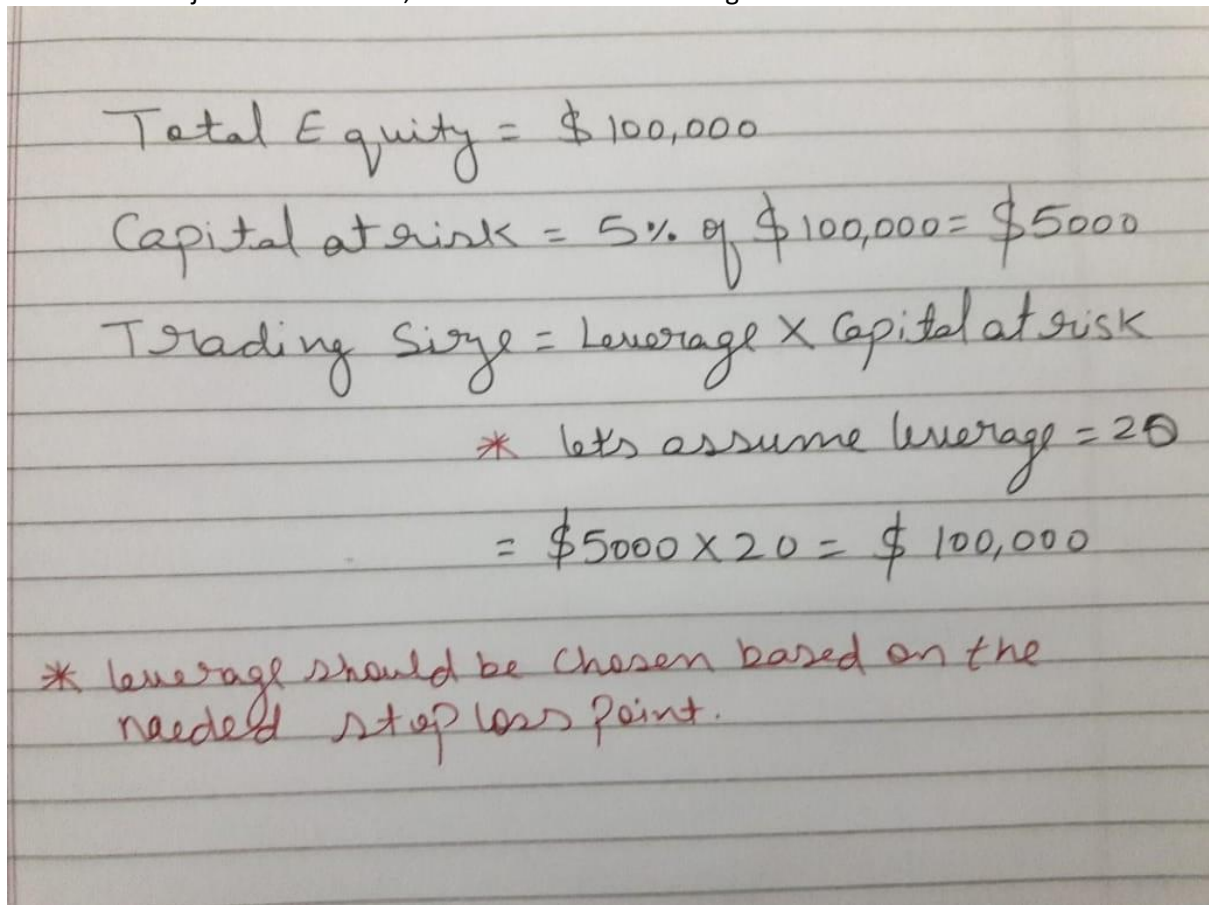 Total Equity = $ 100,000
Capital at risk = 5% of $ 100,000 = $5000
Trading Size = Leverage X Capital at risk
* lets assume leverage = 20
= $5000 X 20 = $ 100,000
* leverage should be chosen based on the
needed stop loss point.